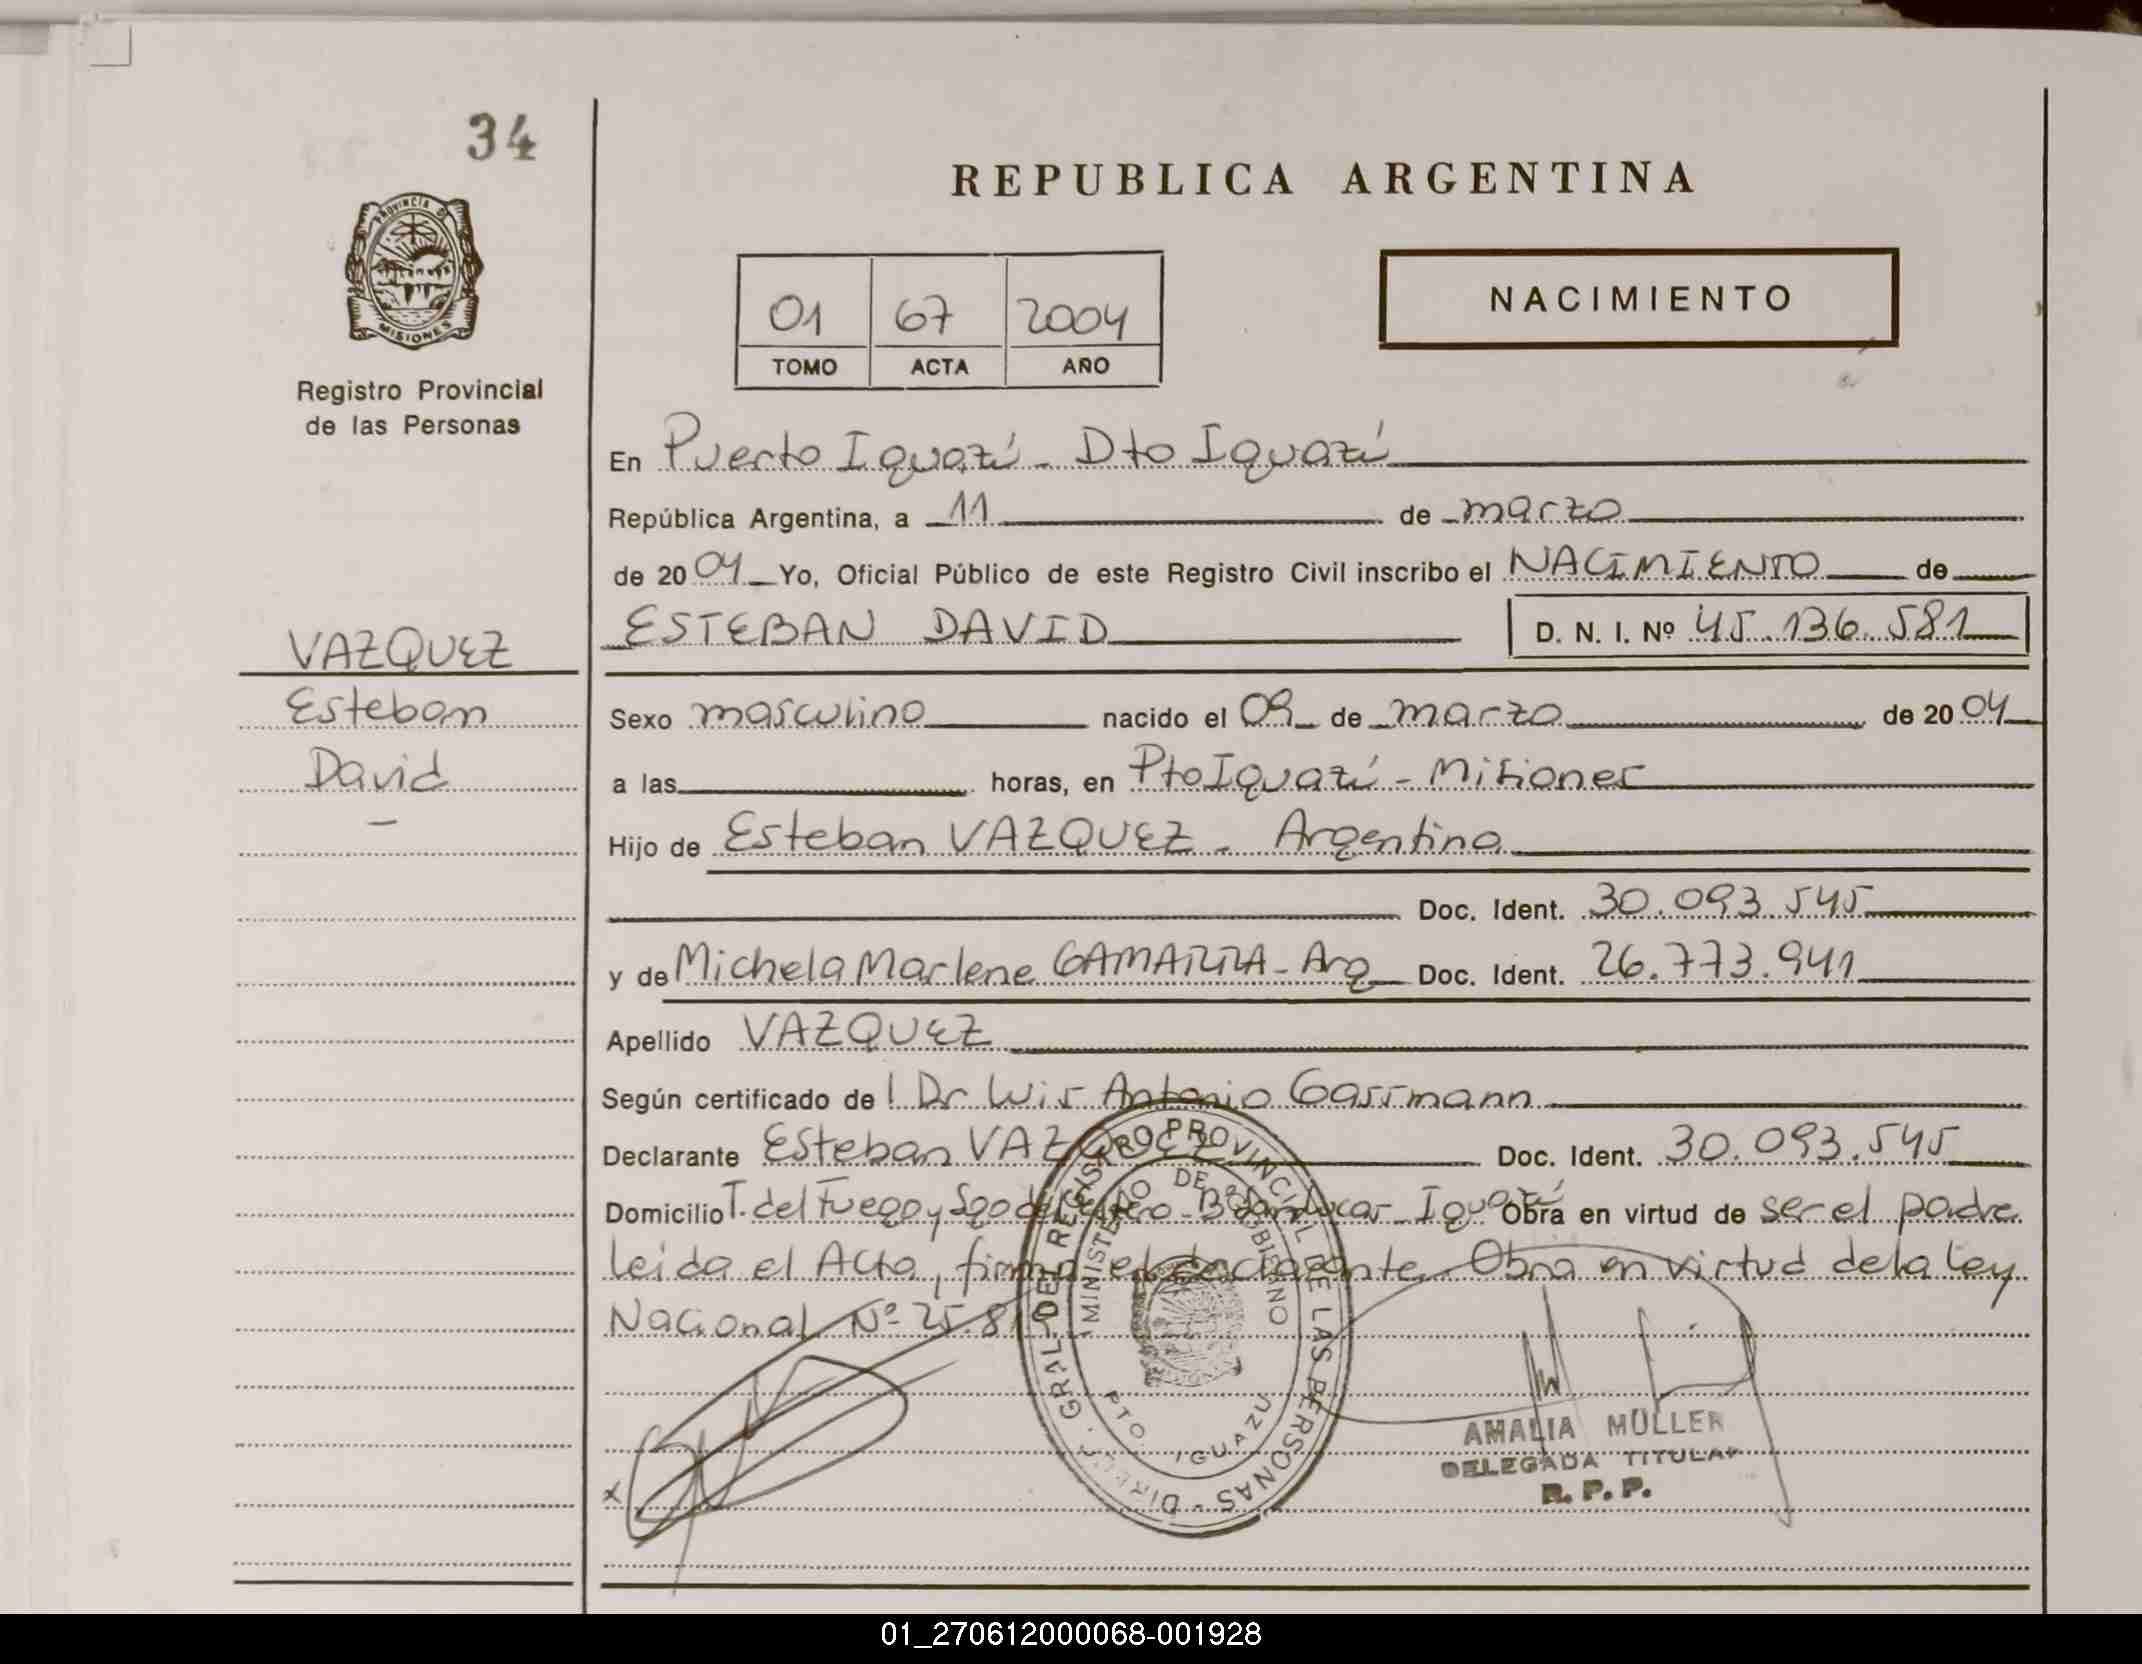 34
REPUBLICA ARGENTINA
PROVINCIA DE
MISIONES
Registro Provincial
de las Personas
01 67 2004
TOMO ACTA AÑO
NACIMIENTO
En Puerto Iguazú - Dto Iguazú
República Argentina, a 11 de marzo
de 20 04 Yo, Oficial Público de este Registro Civil inscribo el NACIMIENTO de
ESTEBAN DAVID D. N. I. Nº 45.136.581
VAZQUEZ
Esteban
David
-
Sexo masculino nacido el 09 de marzo de 20 04
a las horas, en Pto Iguazú - Misiones
Hijo de Esteban VAZQUEZ - Argentino
Doc. Ident. 30.093.545
y de Michela Marlene GAMARRA - Arg Doc. Ident. 26.773.941
Apellido VAZQUEZ
Según certificado de l Dr Luis Antonio Gassmann
Declarante Esteban VAZQUEZ Doc. Ident. 30.093.545
Domicilio T. del Fuego y Sgo del Estero - Bº San Lucas - Iguazú Obra en virtud de ser el padre
leida el Acta, firma el declarante. Obra en virtud de la Ley
Nacional Nº 25.81
DIRECC. GRAL. DE REGISTRO PROVINCIAL DE LAS PERSONAS
MINISTERIO DE GOBIERNO
PTO IGUAZU
x
AMALIA MÜLLER
DELEGADA TITULAR
R. P. P.
01_270612000068-001928